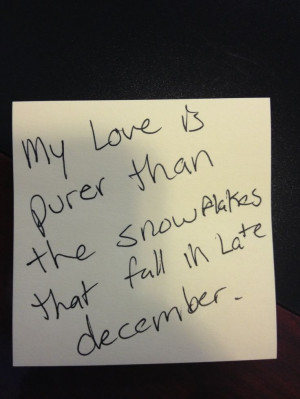 My Love is
purer than
the snowflakes
that fall in Late
december.